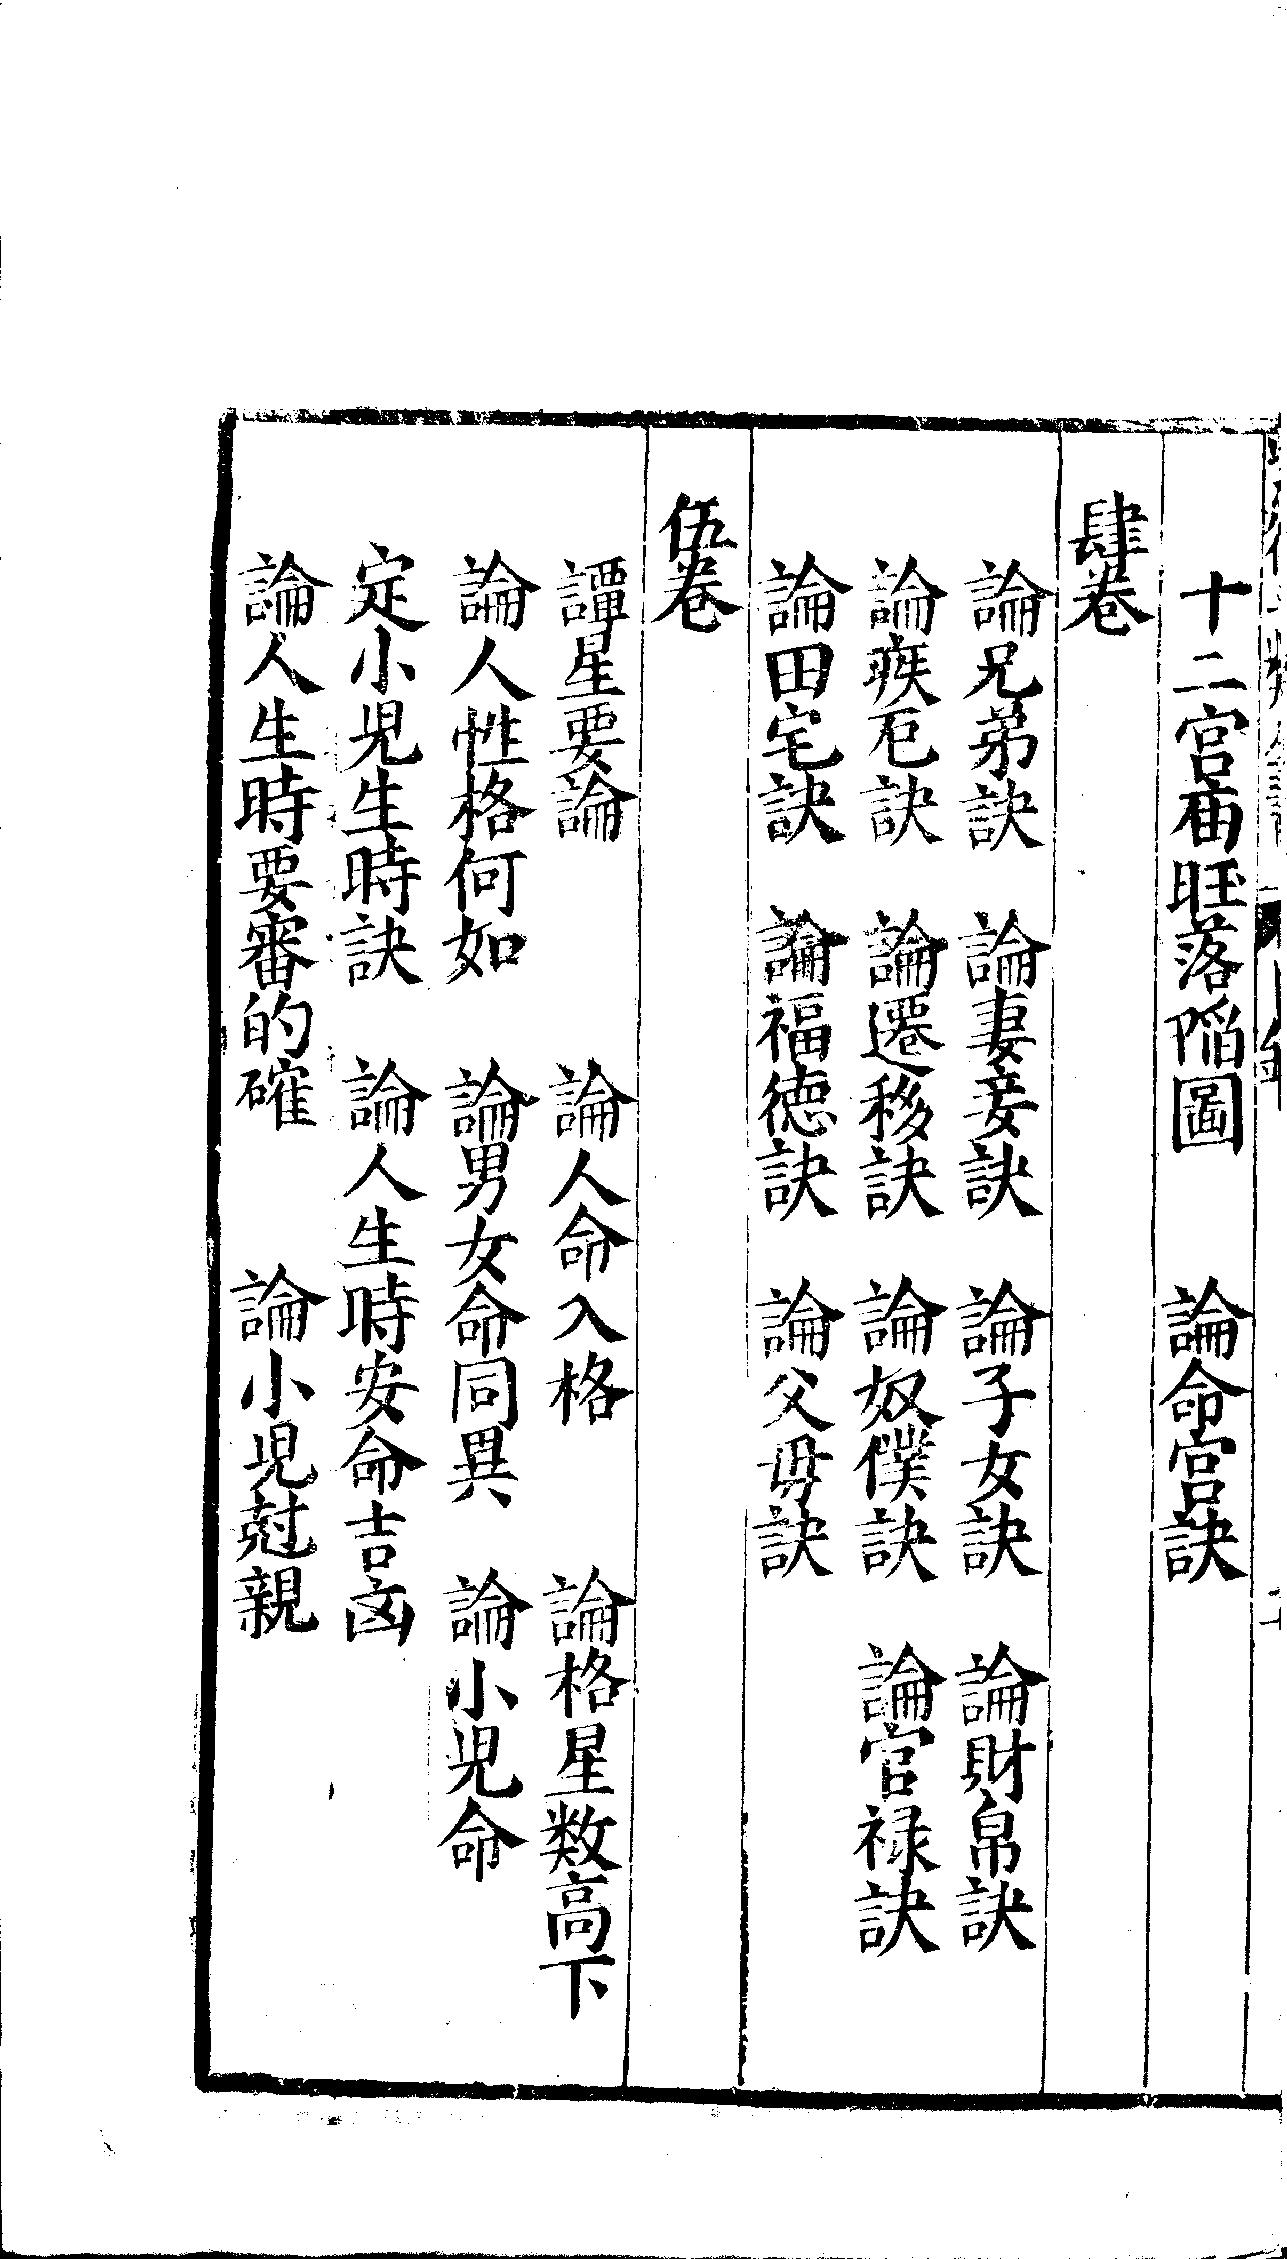 十二宮庙旺落陷圖　論命宮訣
肆卷
論兄弟訣　論妻妾訣　論子女訣　論財帛訣
論疾厄訣　論遷移訣　論奴僕訣　論官禄訣
論田宅訣　論福德訣　論父毋訣
伍卷
譚星要論　論人命入格　論格星数高下
論人性格何如　論男女命同異　論小児命
定小児生時訣　論人生時安命吉凶
論人生時要審的確　論小児尅親